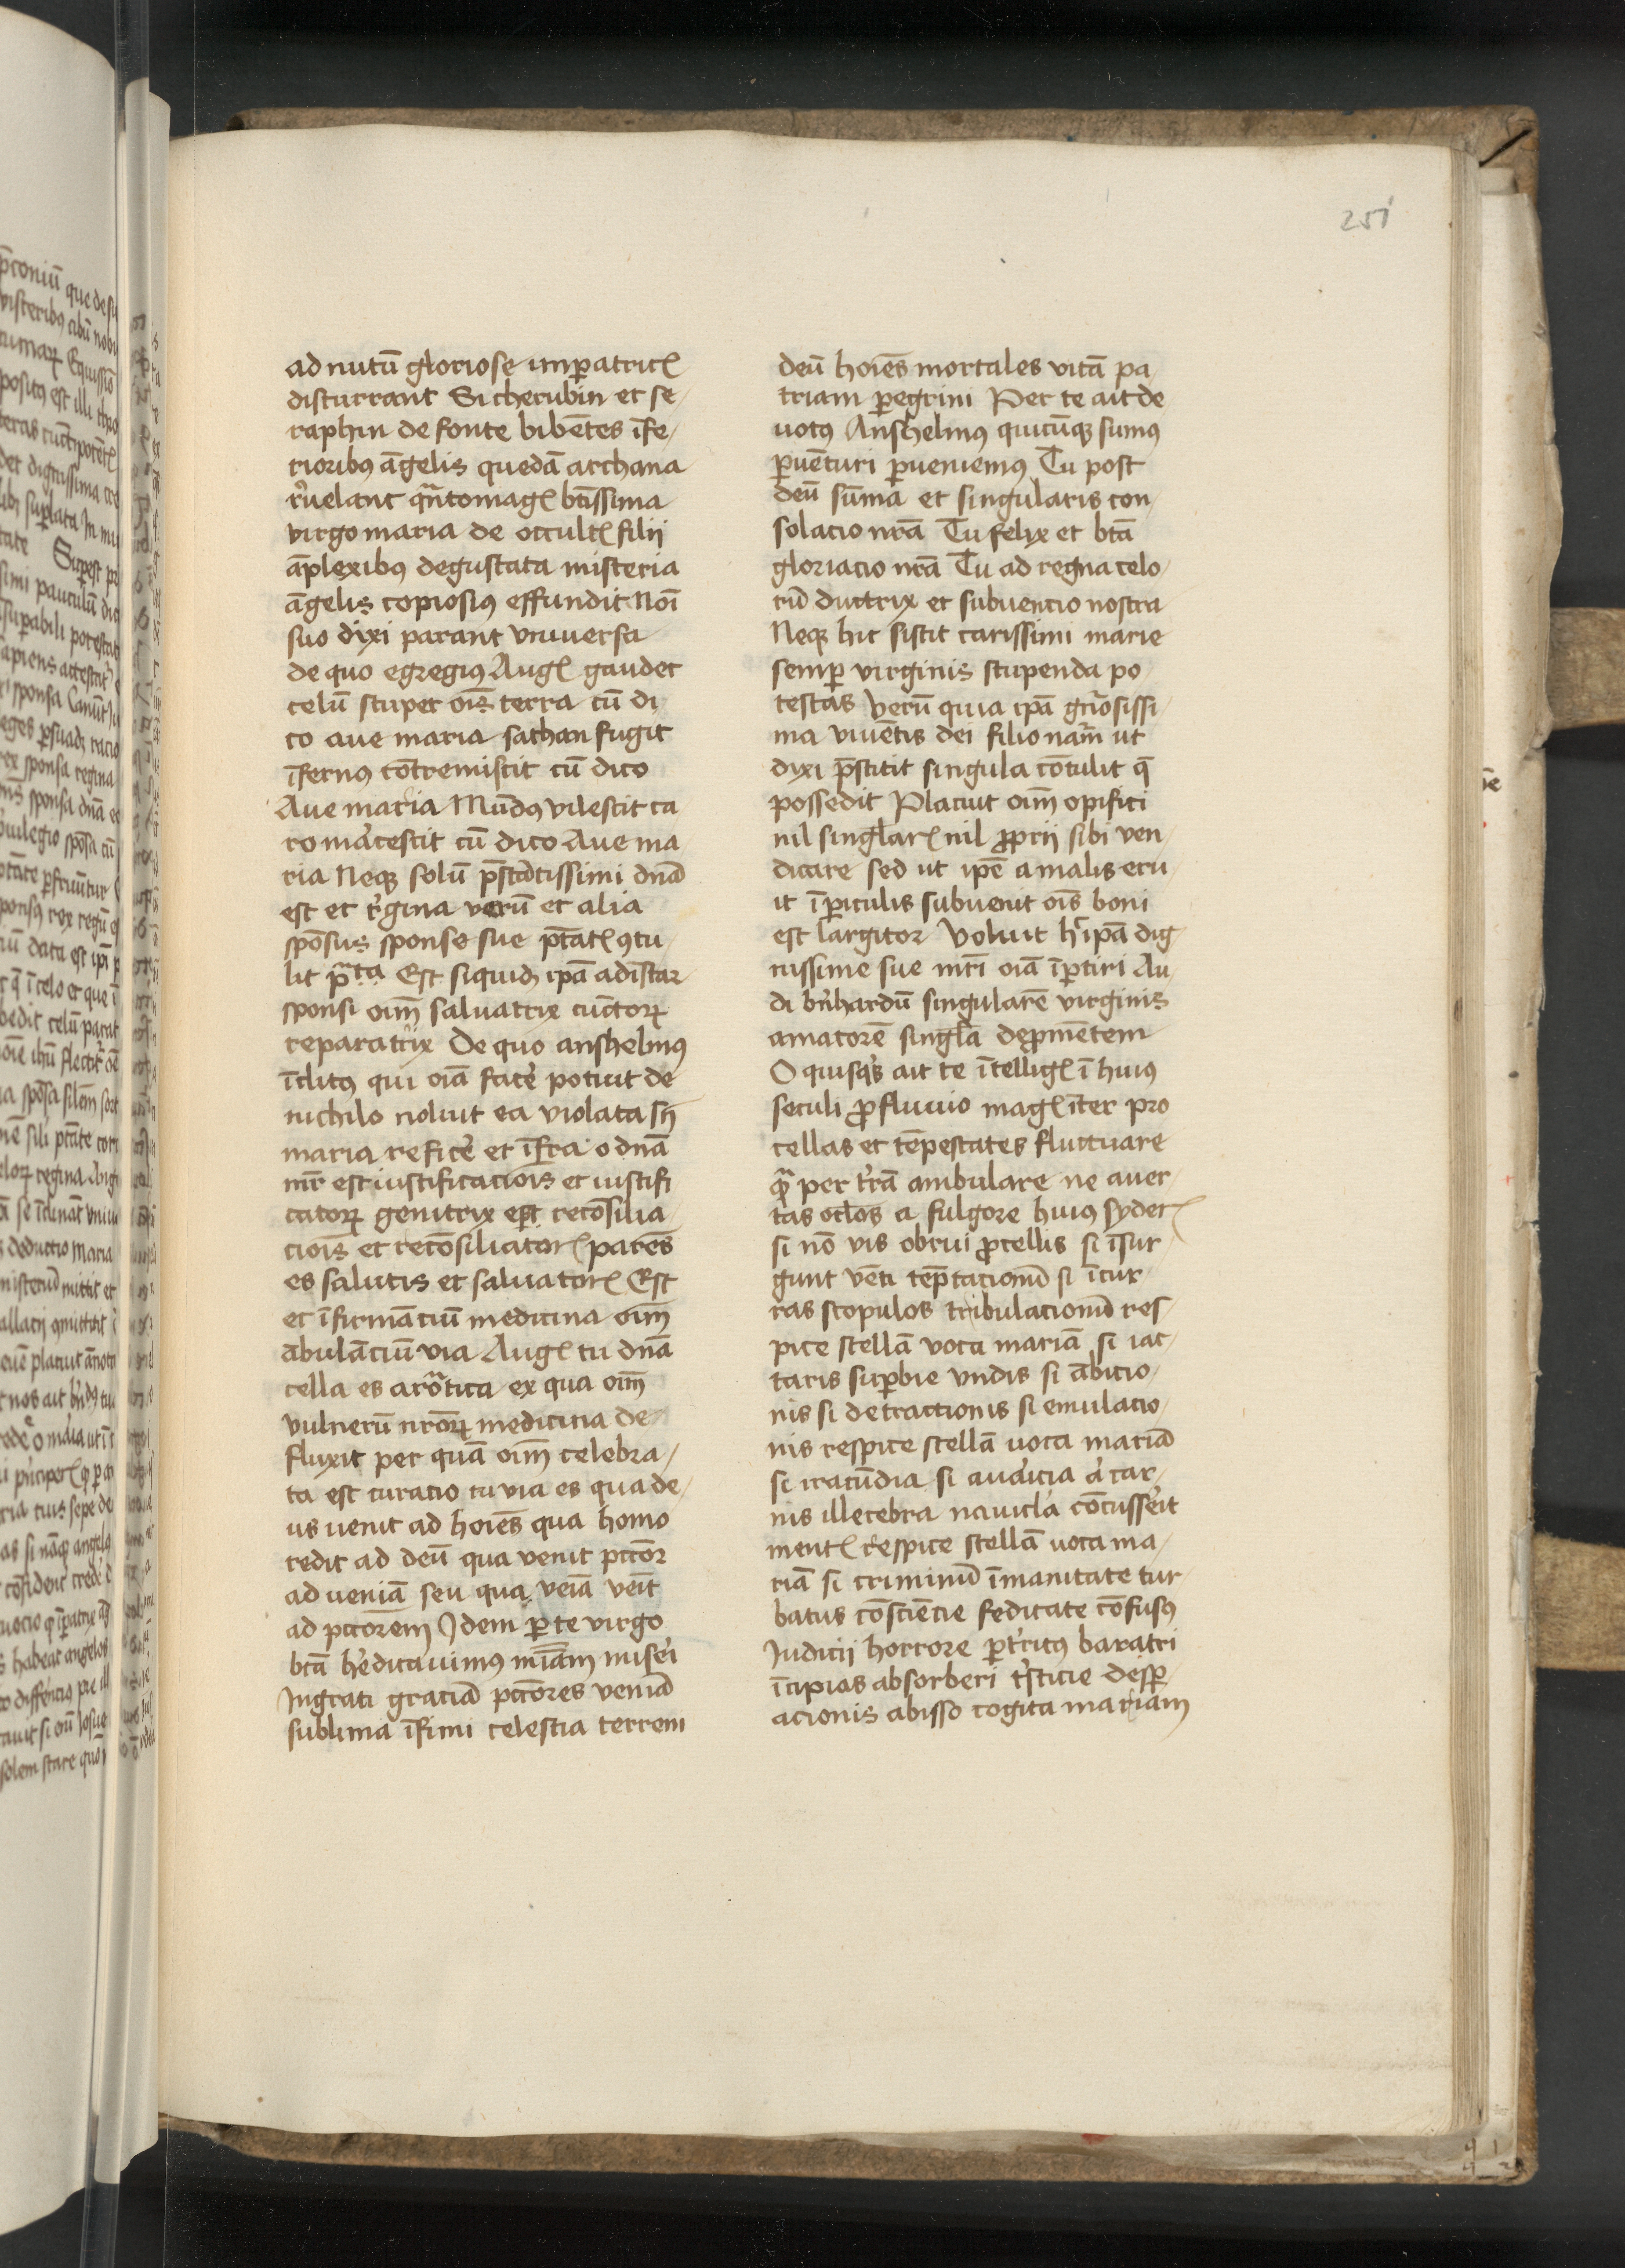 251
ad nutū gloriose imꝑatricꝭ
discurrant Si cherubin et se
raphin de fonte bibētes īfe
riorib9 āgelis quedā archana
r̉uelant qn̄tomagꝭ btīssima
virgo maria de occultꝭ filij
āplexib9 degustata misteria
āgelis copiosi9 effundit Noī
suo dixi parant vniuersa
de quo egregi9 Augꝭ gaudet
celū stupet oīs terra cū di
co aue maria sathan fugit
īfern9 cōtremiscit cū dico
Aue maria Mūd9 vilescit ca
ro marcescit cū dico Aue ma
ria Neqꝫ solū p̄stātissimi dnā
est et r̉gina verū et alia
spōsus sponse sue ptātꝭ ꝯtu
lit p̄ta Est siquidꝫ ipā ad īstar
sponsi oīm saluatrix cūctoꝝ
reparatrix De quo anshelm9
īclit9 qui oīa facē potuit de
nichilo noluit ea violata sn̄
maria reficē et īfra o dnā
mr̄ est iustificaciōis et iustifi
catoꝝ genitrix est recōsilia
ciōis et recōsiliatorꝭ parēs
es salutis et saluatorꝭ Est
et īfirmāciū medicina oīm
ābulāciū via Augꝭ tu dnā
cella es aromatica ex qua oīm
vulnerū nr̄oꝝ medicina de
fluxit per quā oīm celebra
ta est curacio tu via es qua de
us uenit ad hoīes qua homo
redit ad deū qua venit pctōr
ad veniā seu qua veīa veīt
ad pctōrem Idem ꝑ te virgo
btā h̉editauimus mīam mis̉ei
Ingrati graciā pctōres veniā
sublima īfimi celestia terreni
deū hoīes mortales vitā pa
triam ꝑegrini Per te ait de
uot9 Anshelm9 quicūqꝫ sum9
ꝑuēturi ꝑueniem9 Tu post
deū sūma et singularis con
solacio nrā Tu felix et btā
gloriacio nrā Tu ad regna celo
rū ductrix et subuencio nostra
Neqꝫ hic sistit carissimi marie
semꝑ virginis stupenda po
testas Verū quia ipā gn̄osissi
ma viuētis dei filio nam̄ ut
dixi p̄stitit singula cōtulit q̄
possedit Placuit oīm opifici
nil singlarꝭ nil ꝓprij sibi ven
dicare sed ut ipē a malis eru
it ī ꝑiculis subuenit oīs boni
est largitor Voluit h̉ ipā dig
nissime sue mrī oīa īꝑtiri Au
di b̉nhardū singularē virginis
amatorē singlā dep̄mētem
O quisq̉s ait te ītelligꝭ ī hui9
seculi ꝓfluuio magꝭ īter pro
cellas et tēpestates fluctuare
qᷓ per t̉rā ambulare ne auer
tas oclōs a fulgore hui9 syderꝭ
si nō vis obrui ꝓcellis si īsur
gunt vēti tēptacionū si īcur
ras scopulos tribulacionū res
pice stellā voca mariā si iac
taris suꝑbie vndis si ābicio
nis si detractionis si emulacio
nis respice stellā uoca mariā
si iracūdia si auaricia a̓ car
nis illecebra nauiclā cōcuss̉eit
mentꝭ respice stellā uoca ma
riā si criminū īmanitate tur
batus cōsciēcie feditate cōfus9
Iudicij horrore ꝑt̉rit9 baratri
īcipias absorberi t̉sticie desꝑ
acionis abisso cogita mariam